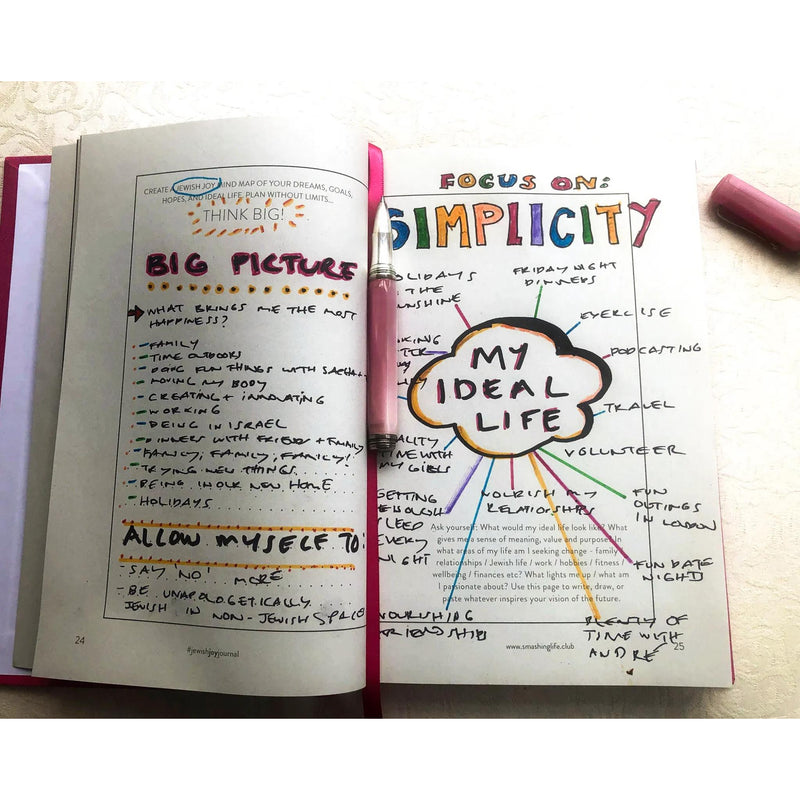 CREATE A JEWISH JOY MIND MAP OF YOUR DREAMS, GOALS,
HOPES, AND IDEAL LIFE. PLAN WITHOUT LIMITS...
THINK BIG!
BIG PICTURE
WHAT BRINGS ME THE MOST
HAPPINESS?
- FAMILY
- TIME OUTDOORS
- DOING FUN THINGS WITH SACHA +
- MOVING MY BODY
- CREATING + INNOVATING
- WORKING
- BEING IN ISRAEL
- DINNERS WITH FRIENDS + FAMILY
- FAMILY, FAMILY, FAMILY!
- TRYING NEW THINGS
- BEING IN OUR NEW HOME
- HOLIDAYS
ALLOW MYSELF TO:
- SAY 'NO' MORE
- BE UNAPOLOGETICALLY
JEWISH IN NON-JEWISH SPACE
24
#jewishjoyjournal
FOCUS ON:
SIMPLICITY
OLIDAYS
THE
UNSHINE
FRIDAY NIGHT
DINNERS
EXERCISE
PODCASTING
TRAVEL
VOLUNTEER
FUN
OUTINGS
IN LONDON
FUN DATE
NIGHTS
PLENTY OF
TIME WITH
ANDRÉ
MY
IDEAL
LIFE
ALITY
TIME WITH
MY GIRLS
GETTING
ENOUGH
SLEEP
EVERY
NIGHT
NOURISH MY
RELATIONSHIPS
NOURISHING
FRIENDSHIPS
Ask yourself: What would my ideal life look like? What
gives me a sense of meaning, value and purpose? In
what areas of my life am I seeking change - family
relationships / Jewish life / work / hobbies / fitness /
wellbeing / finances etc? What lights me up / what am
I passionate about? Use this page to write, draw, or
paste whatever inspires your vision of the future.
www.smashinglife.club
25